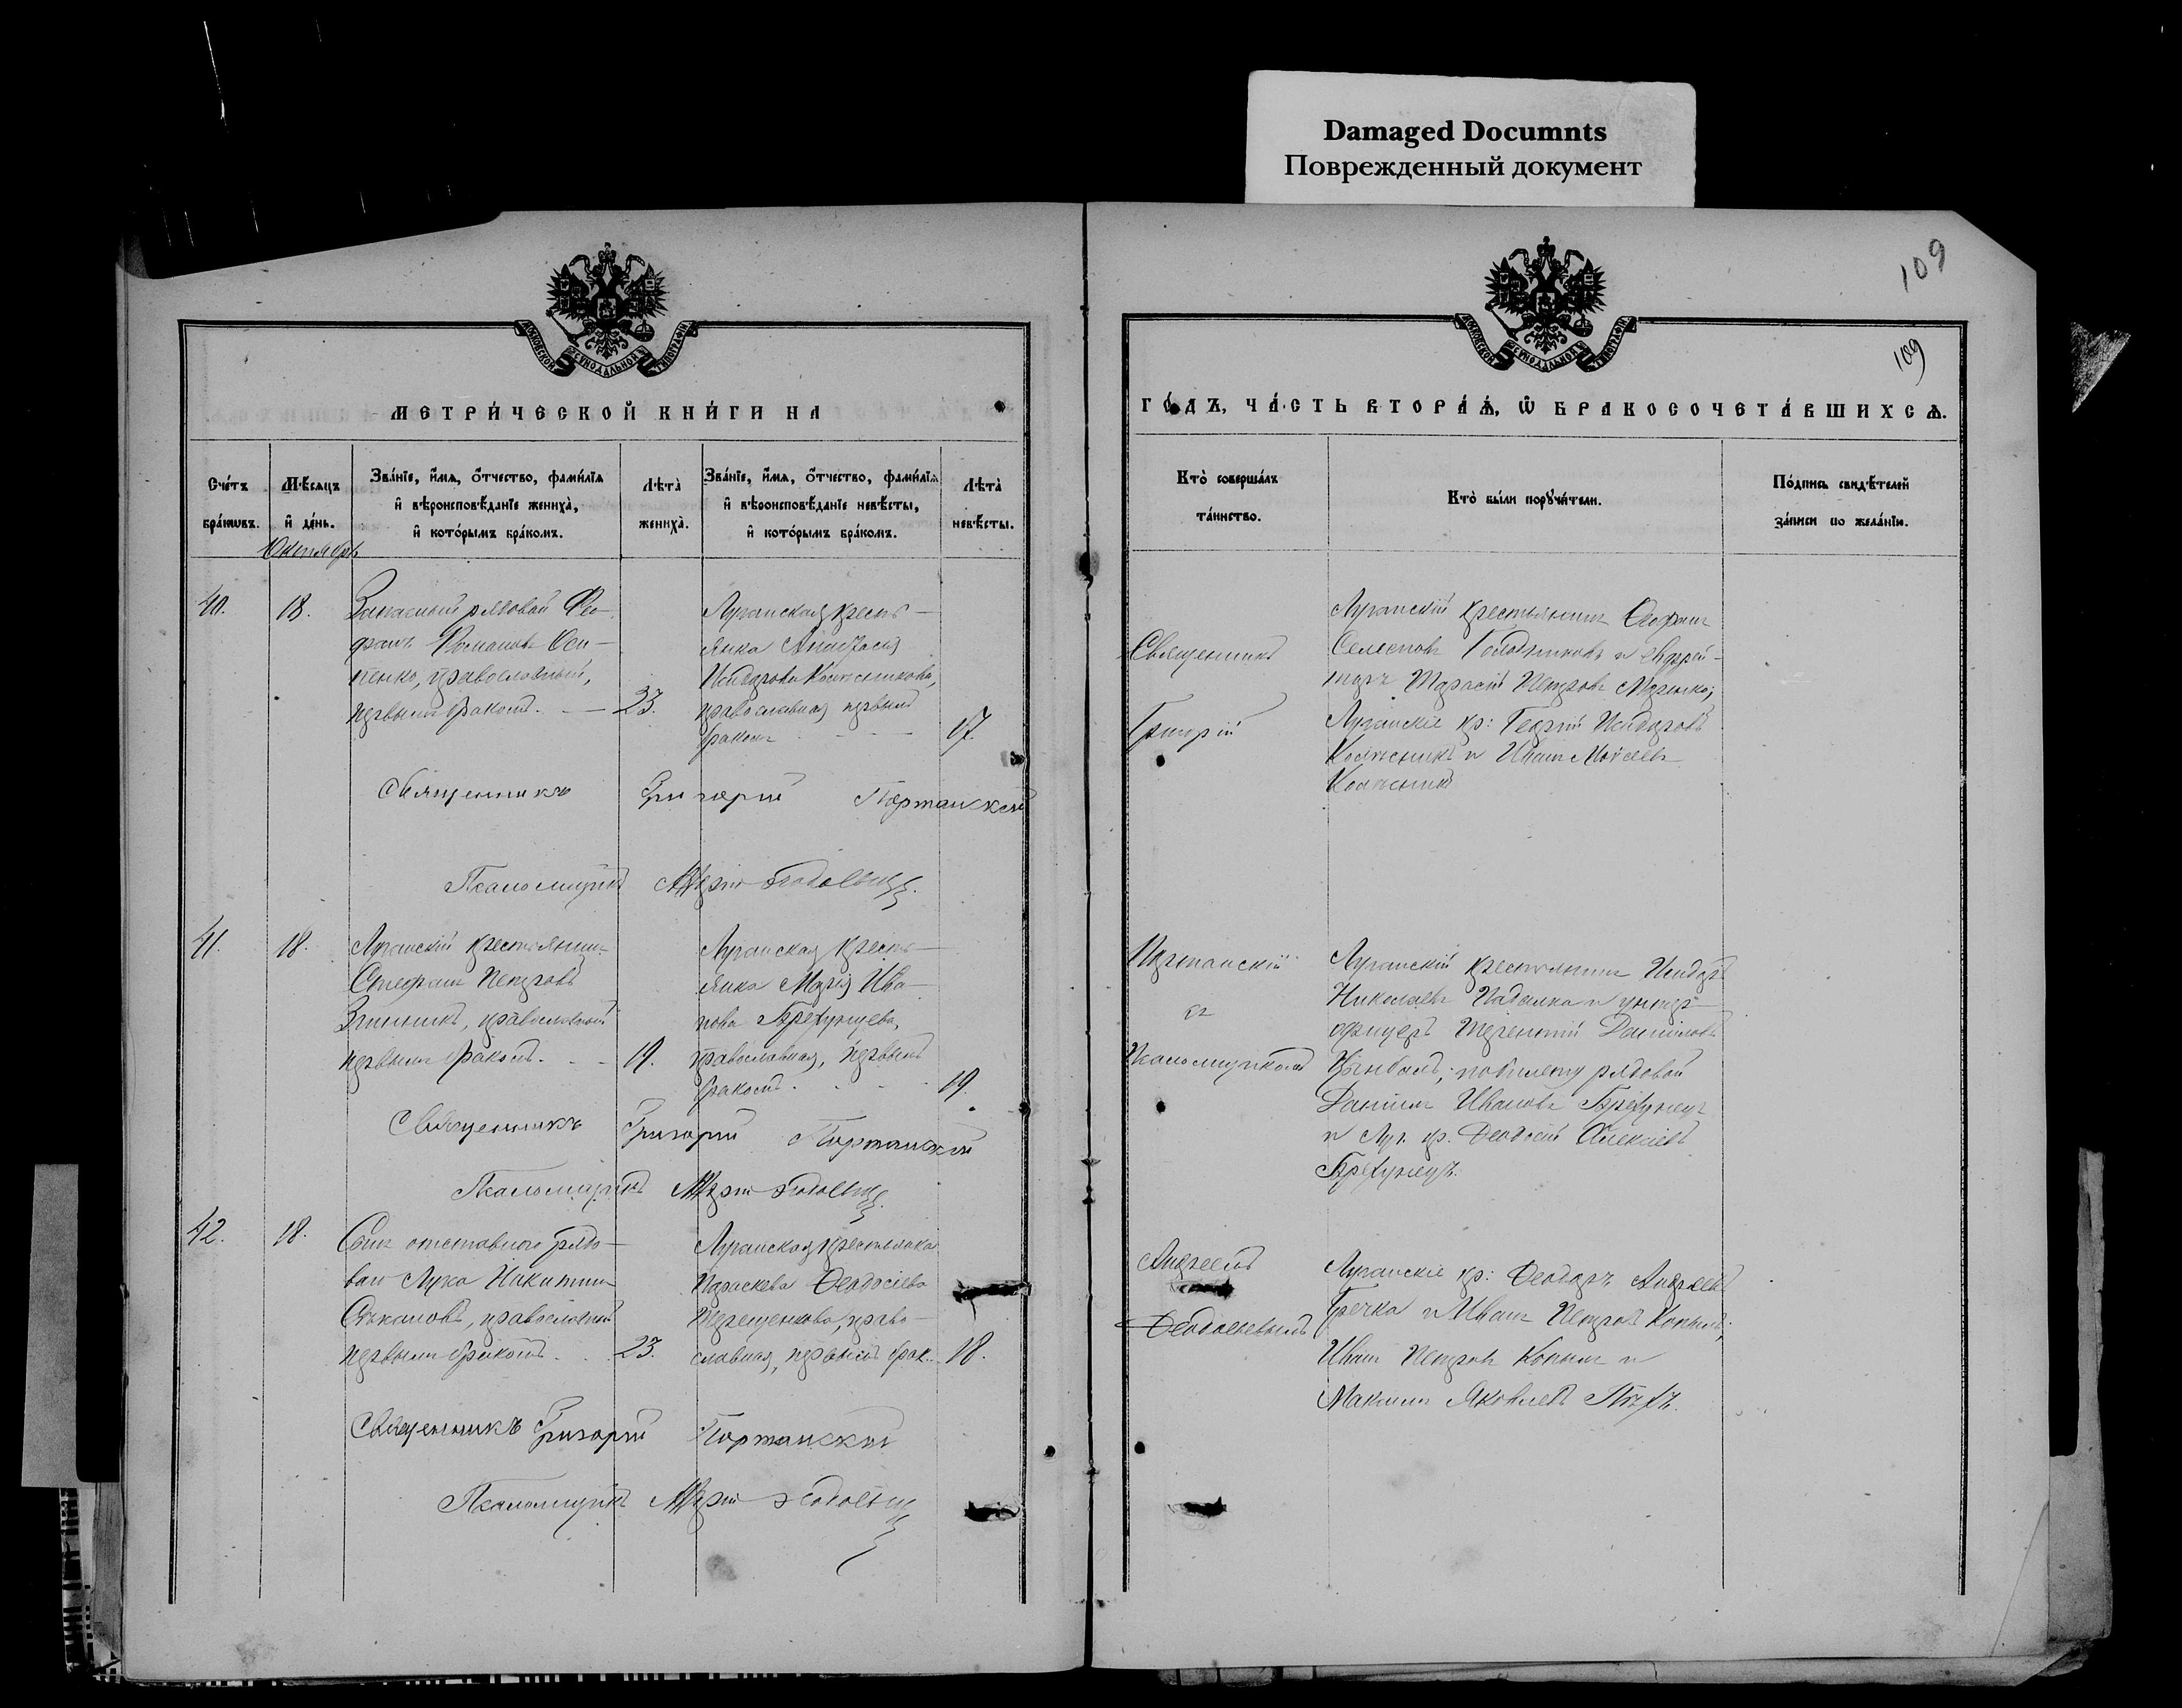 Damaged Documnts
Поврежденный документ
109
109
МОСКОВСКОЙ СѴНОДАЛЬНОЙ ТИПОГРАФІИ
МОСКОВСКОЙ СѴНОДАЛЬНОЙ ТИПОГРАФІИ
МЕТРИ́ЧЕСКОЙ КНИ́ГИ НА
ГО́ДЪ, ЧА́СТЬ ВТОРА́Ѧ, Ѡ БРАКОСОЧЕТА́ВШИХСѦ.
Сче́тъ бра́кѡвъ.
Мѣ́сяцъ и҆ де́нь.
Зва́нїе, и҆́мѧ, ѻ҆́тчество, фами́лїѧ
и҆ вѣроисповѣ́данїе жениха̀,
и҆ кото́рымъ бра́комъ.
Лѣта̀ жениха̀.
Зва́нїе, и҆́мѧ, ѻ҆́тчество, фами́лїѧ
и҆ вѣроисповѣ́данїе невѣ́сты,
и҆ кото́рымъ бра́комъ.
Лѣта̀ невѣ́сты.
Кто̀ соверша́лъ та́инство.
Кто̀ бы́ли порꙋчи́тели.
По́дпись свидѣ́телей за́писи по жела́нїю.
Октябрь
40.
18.
Запасный рядовой Фео-
фанъ Романовъ Оси-
пенко, православный,
первымъ бракомъ.
23.
Луганская кресть-
янка Анастасія
Исидорова Колесникова,
православная первымъ
бракомъ
17.
Священникъ
Григорій
Луганскій крестьянинъ
Голодниковъ и ефрей-
торъ Тарасій Петровъ
Луганскіе кр: Георгій Исидоровъ
Колѣсникъ и Иванъ Моисеевъ
Колѣсникъ
Священникъ Григорій Портанскій
Псаломщикъ Андрей
41.
18.
Луганскій крестьянинъ
Стефанъ Петровъ
православный
первымъ бракомъ.
19.
Луганская кресть-
янка Марія Ива-
нова Брехунцева,
православная, первымъ
бракомъ
19.
Портанскій
съ
Псаломщикомъ
Луганскій крестьянинъ Исидоръ
Николаевъ и унтеръ-
офицеръ Терентій Даниловъ
Цымбалъ; по билету рядовой
Даніилъ Ивановъ Брехунецъ
и Луг. кр. Ѳеодосій Алексѣевъ
Брехунецъ.
Священникъ Григорій Портанскій
Псаломщикъ Андрей
42.
18.
Сынъ отставного рядо-
вого Лука Никитинъ
Стакановъ, православный
первымъ бракомъ
23.
Луганская крестьянка
Параскева Ѳеодосіева
Терещенкова, право-
славная, первымъ брак.
18.
Андреемъ
Луганскіе кр: Ѳеодоръ Андреевъ
Гречка и Иванъ Петровъ Копылъ;
Иванъ Петровъ Копылъ и
Максимъ Яковлевъ
Священникъ Григорій Портанскій
Псаломщикъ Андрей